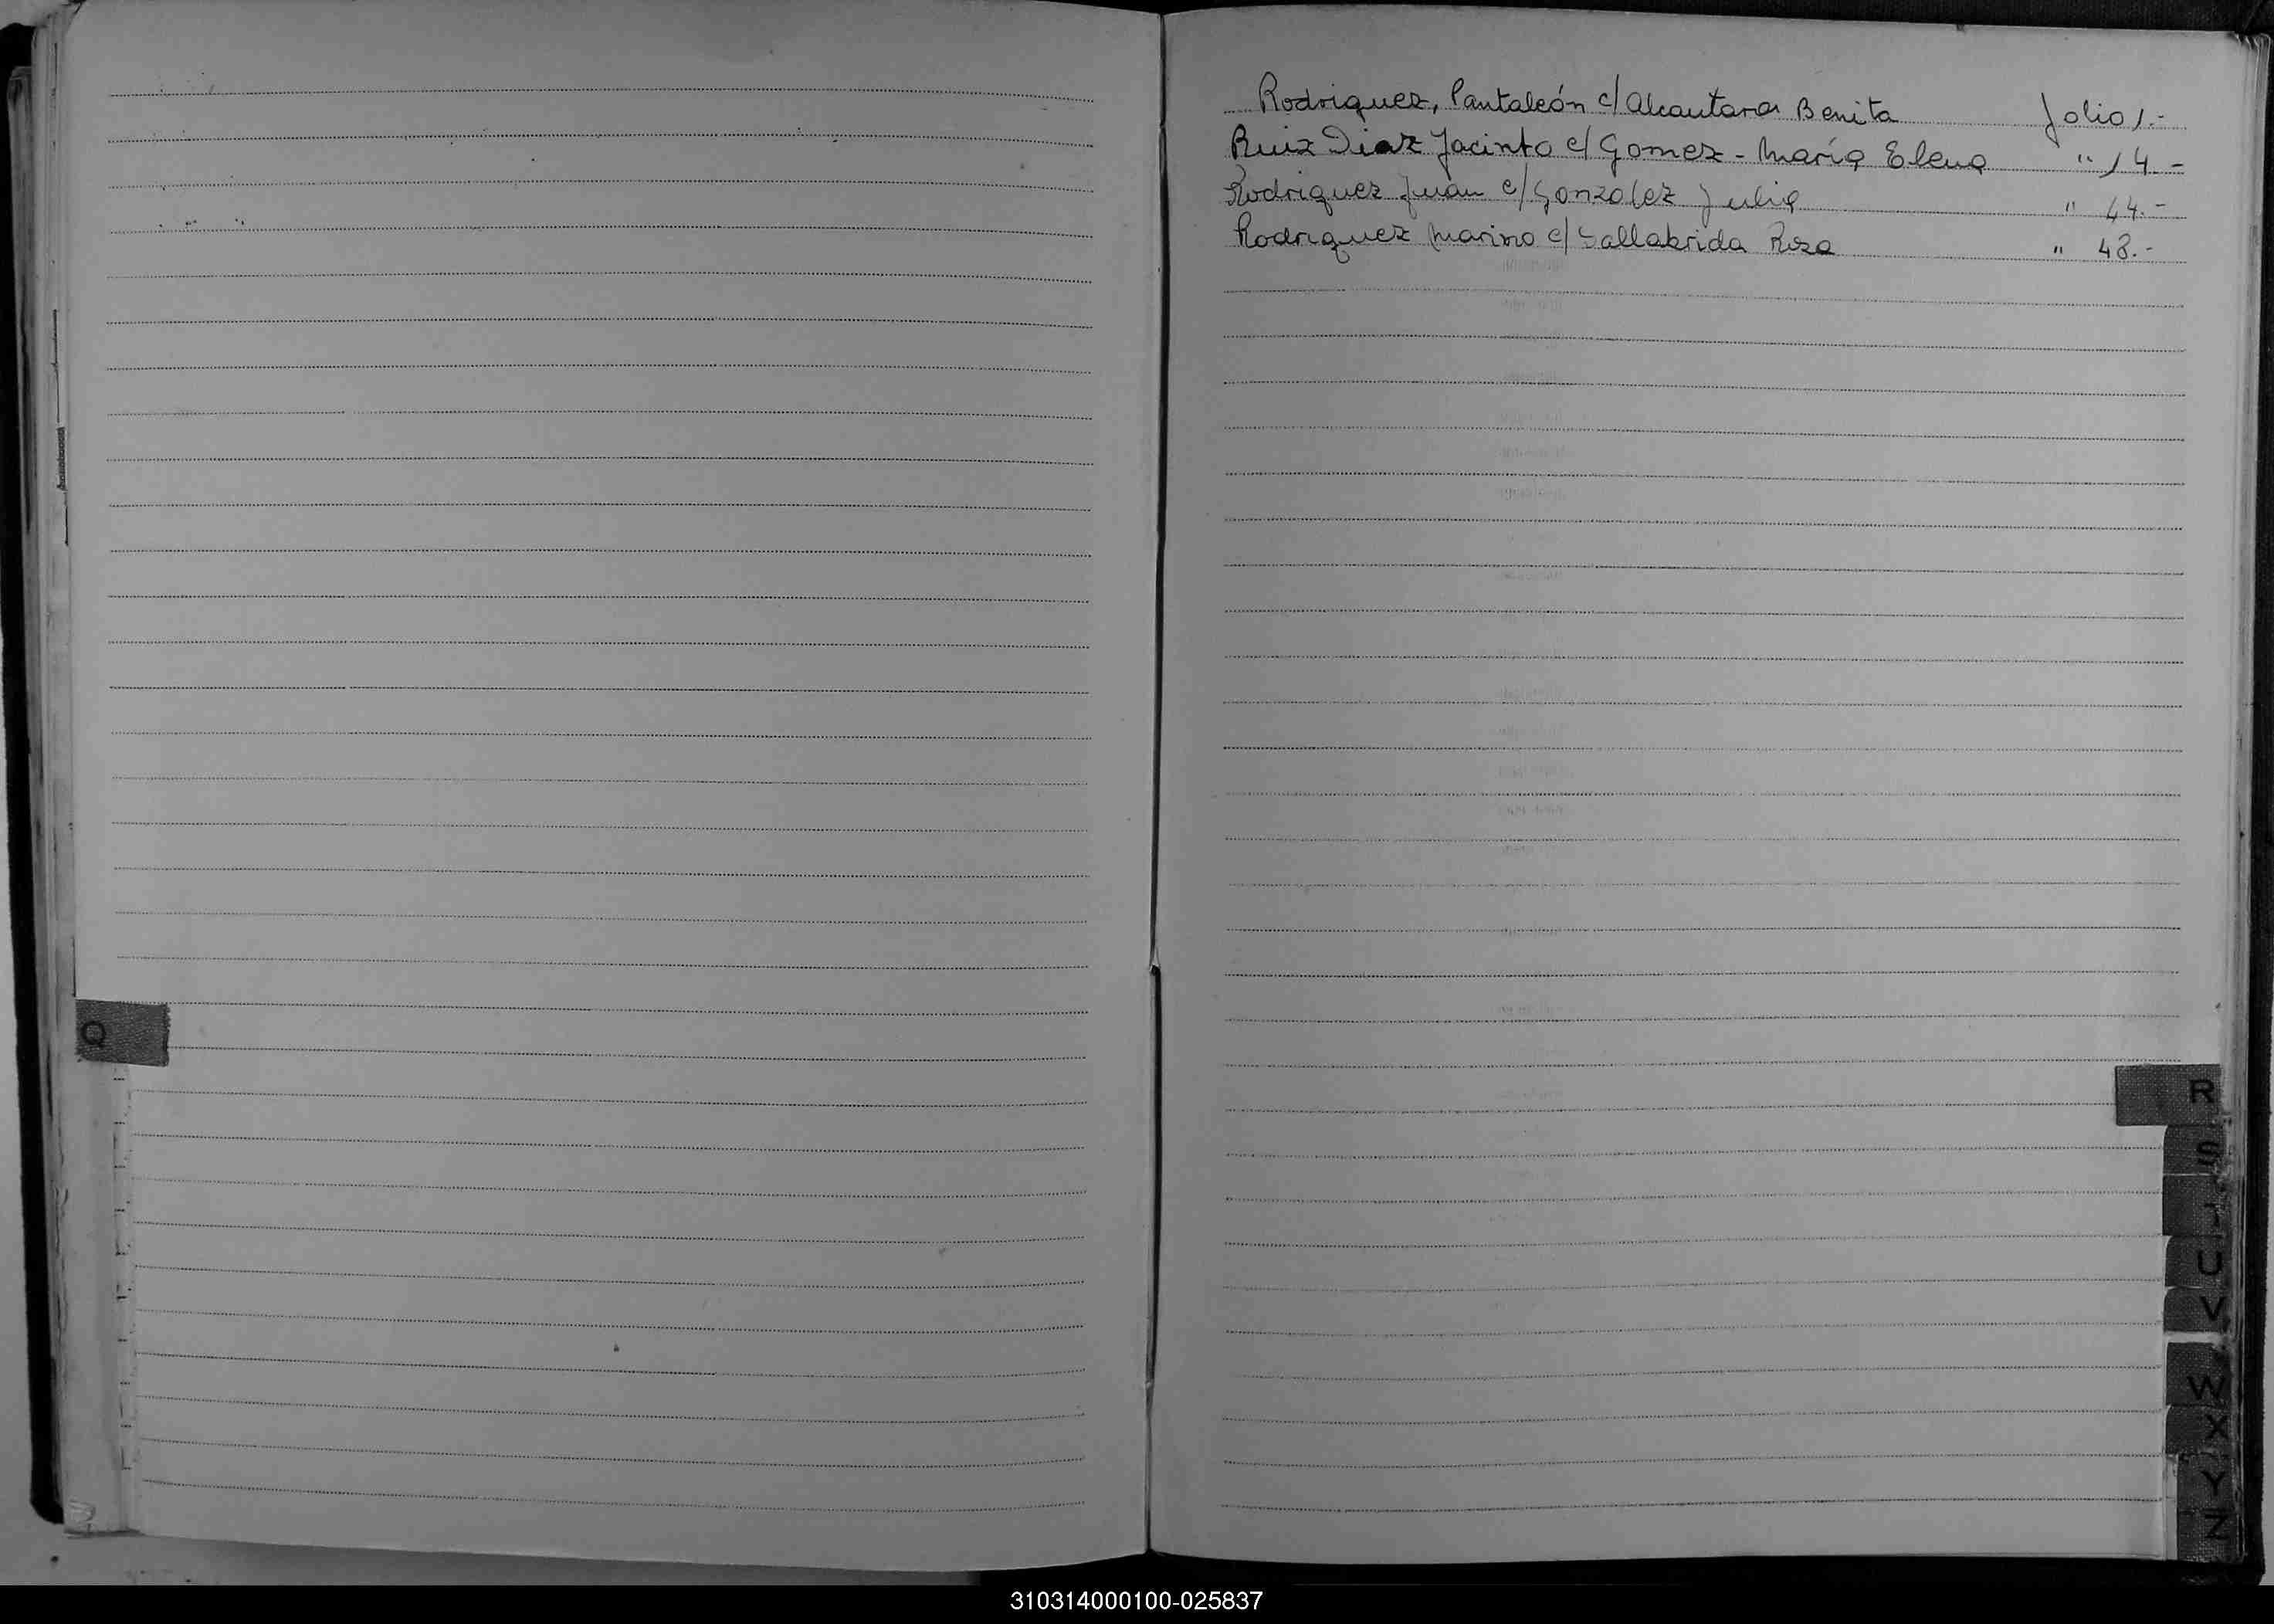 Rodriguez, Pantaleón c/ Alcantara Benita Folio 1.-
Ruiz Diaz Jacinto c/ Gomez - María Elena " 14.-
Rodriguez Juan c/ Gonzalez Julia " 44.-
Rodriguez Marino c/ Rosa " 48.-
Q
R
S
T
U
V
W
X
Y
Z
310314000100-025837